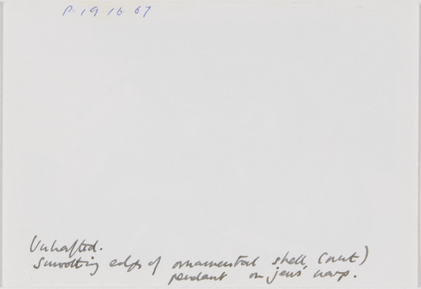 P.19.16.67
Unhafted.
Smoothing edges of ornamental shell (out)
pendant on jews' harp.